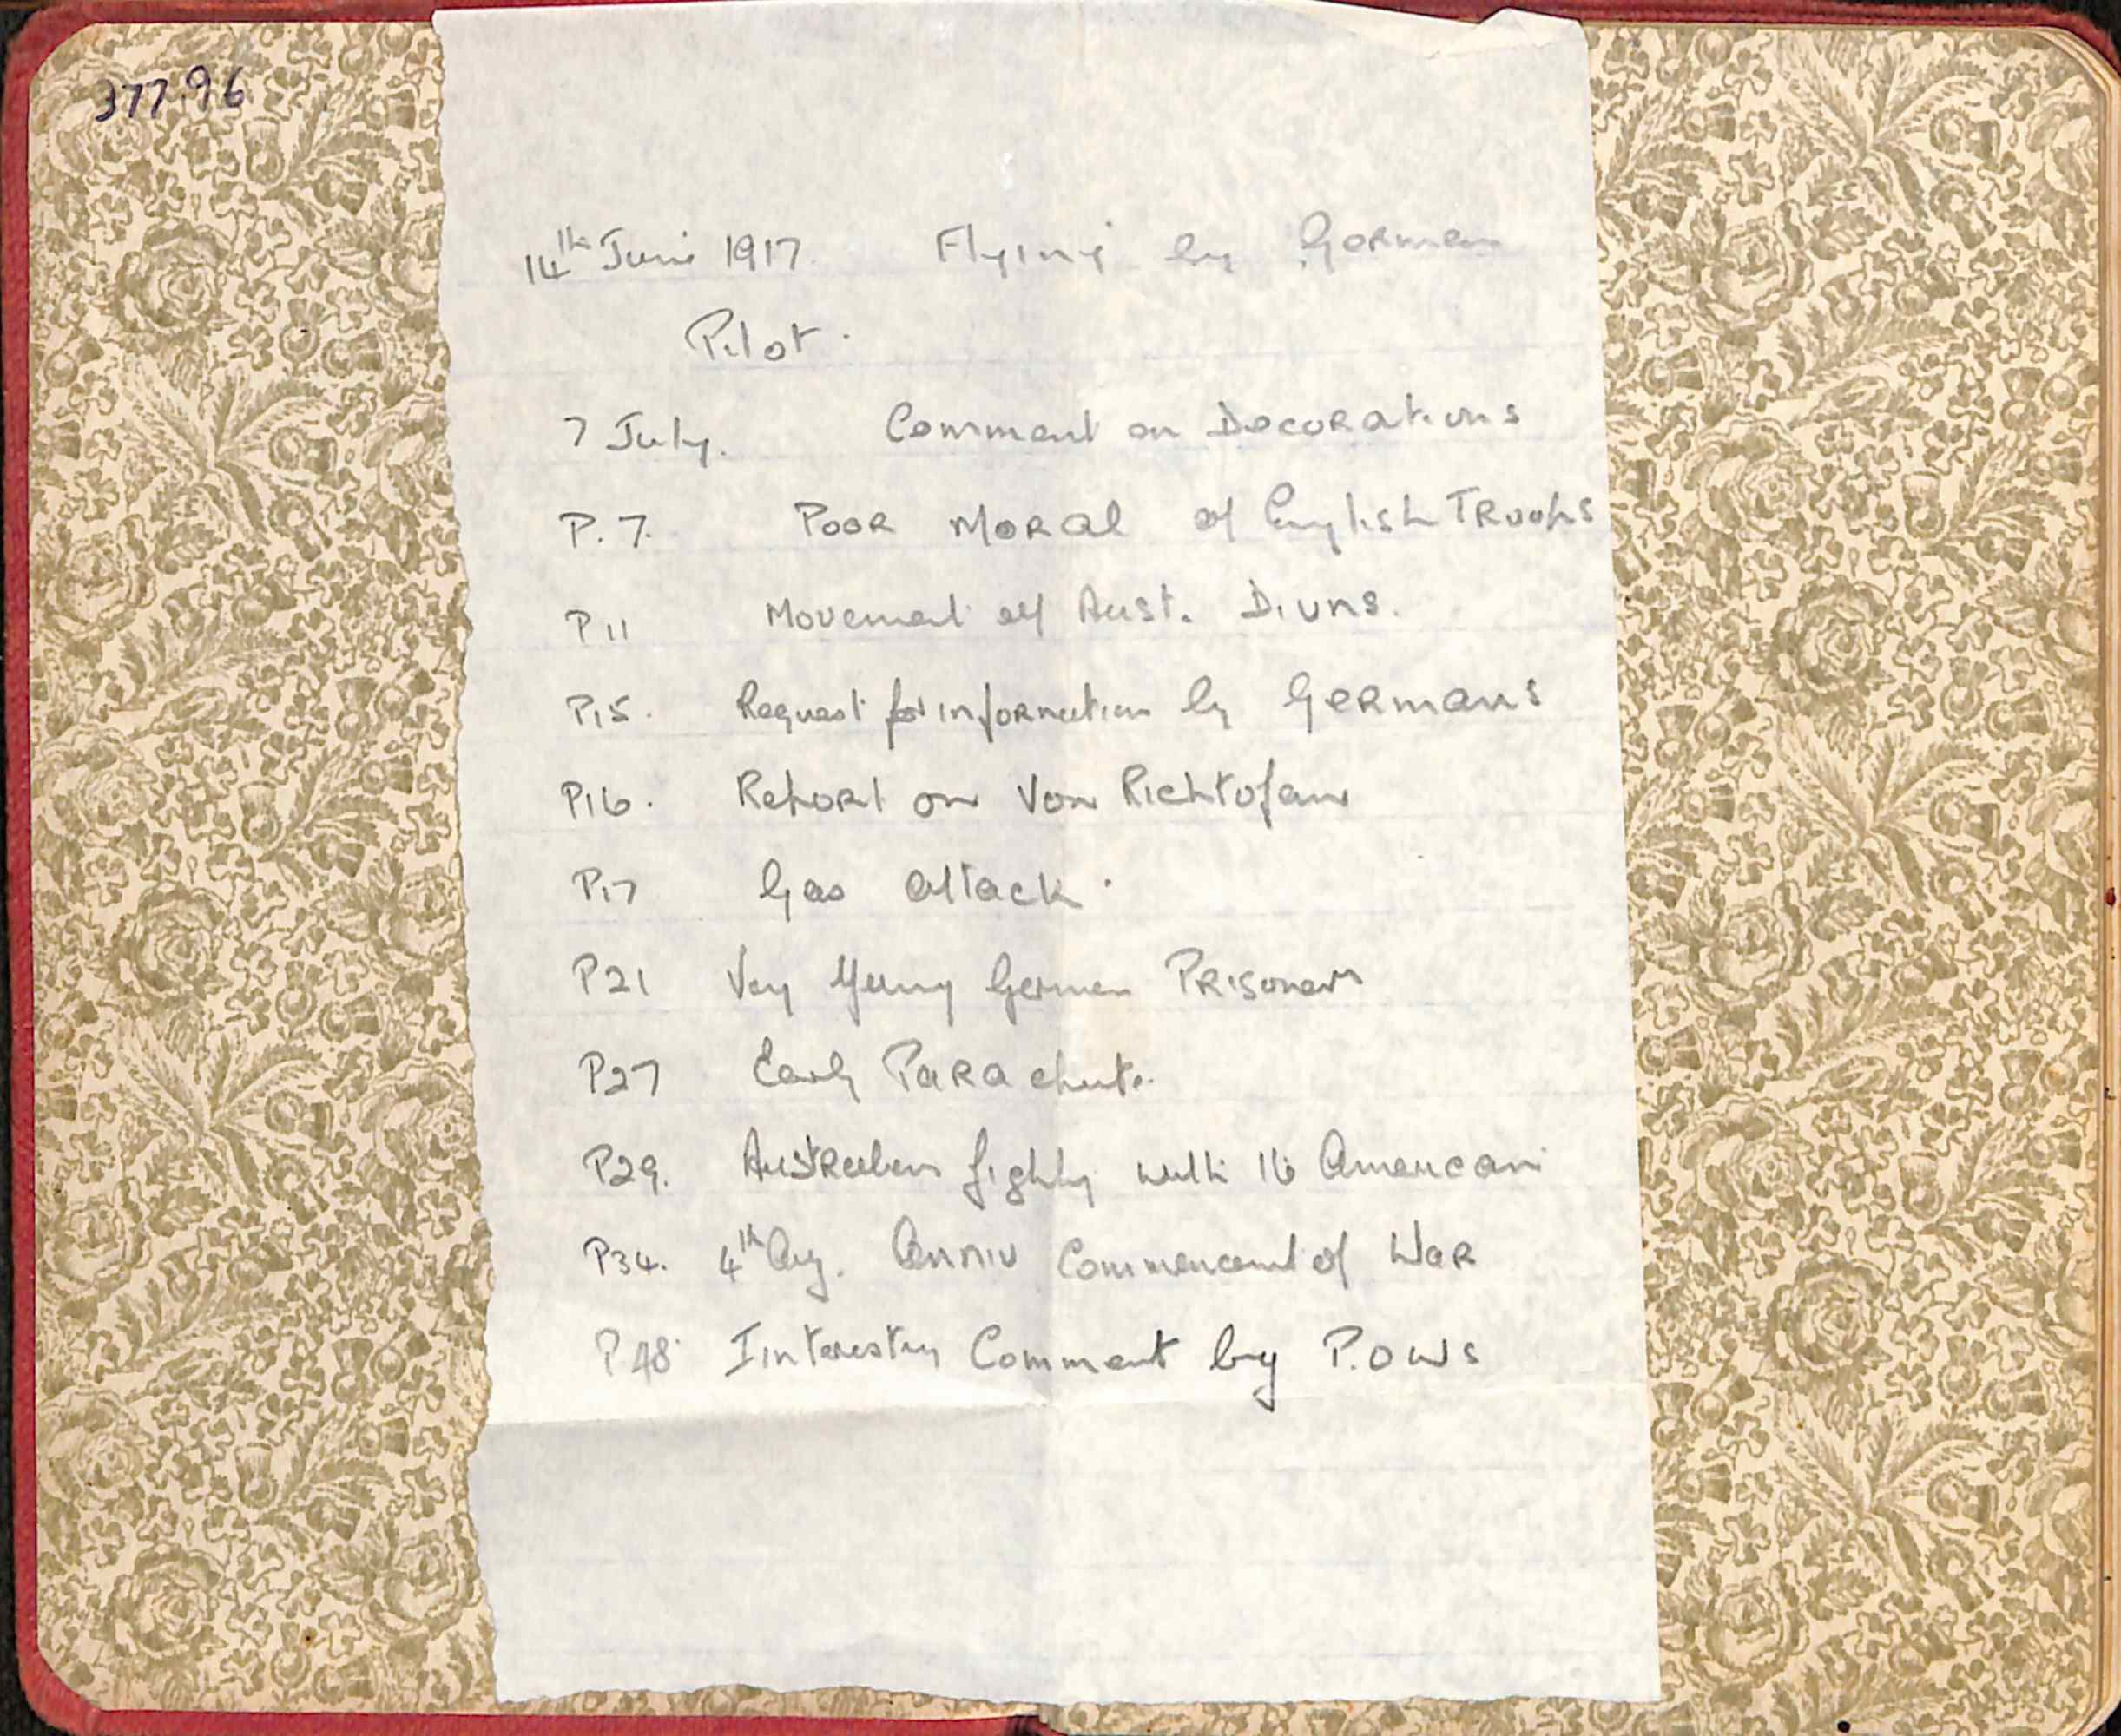 377.96
14th June 1917. Flying by German
Pilot.
7 July. Comment on Decorations
P. 7. Poor Moral of English Troops
P 11 Movement of Aust. Divns.
P15. Request for information by Germans
P16. Report on Von Richtofen
P17 Gas attack.
P21 Very Young German Prisoners
P27 Early Parachute.
P29. Australian fighting with 16 American
P34. 4th Aug. Anniv Commencement of War
P48 Interesting Comment by P.O Ws